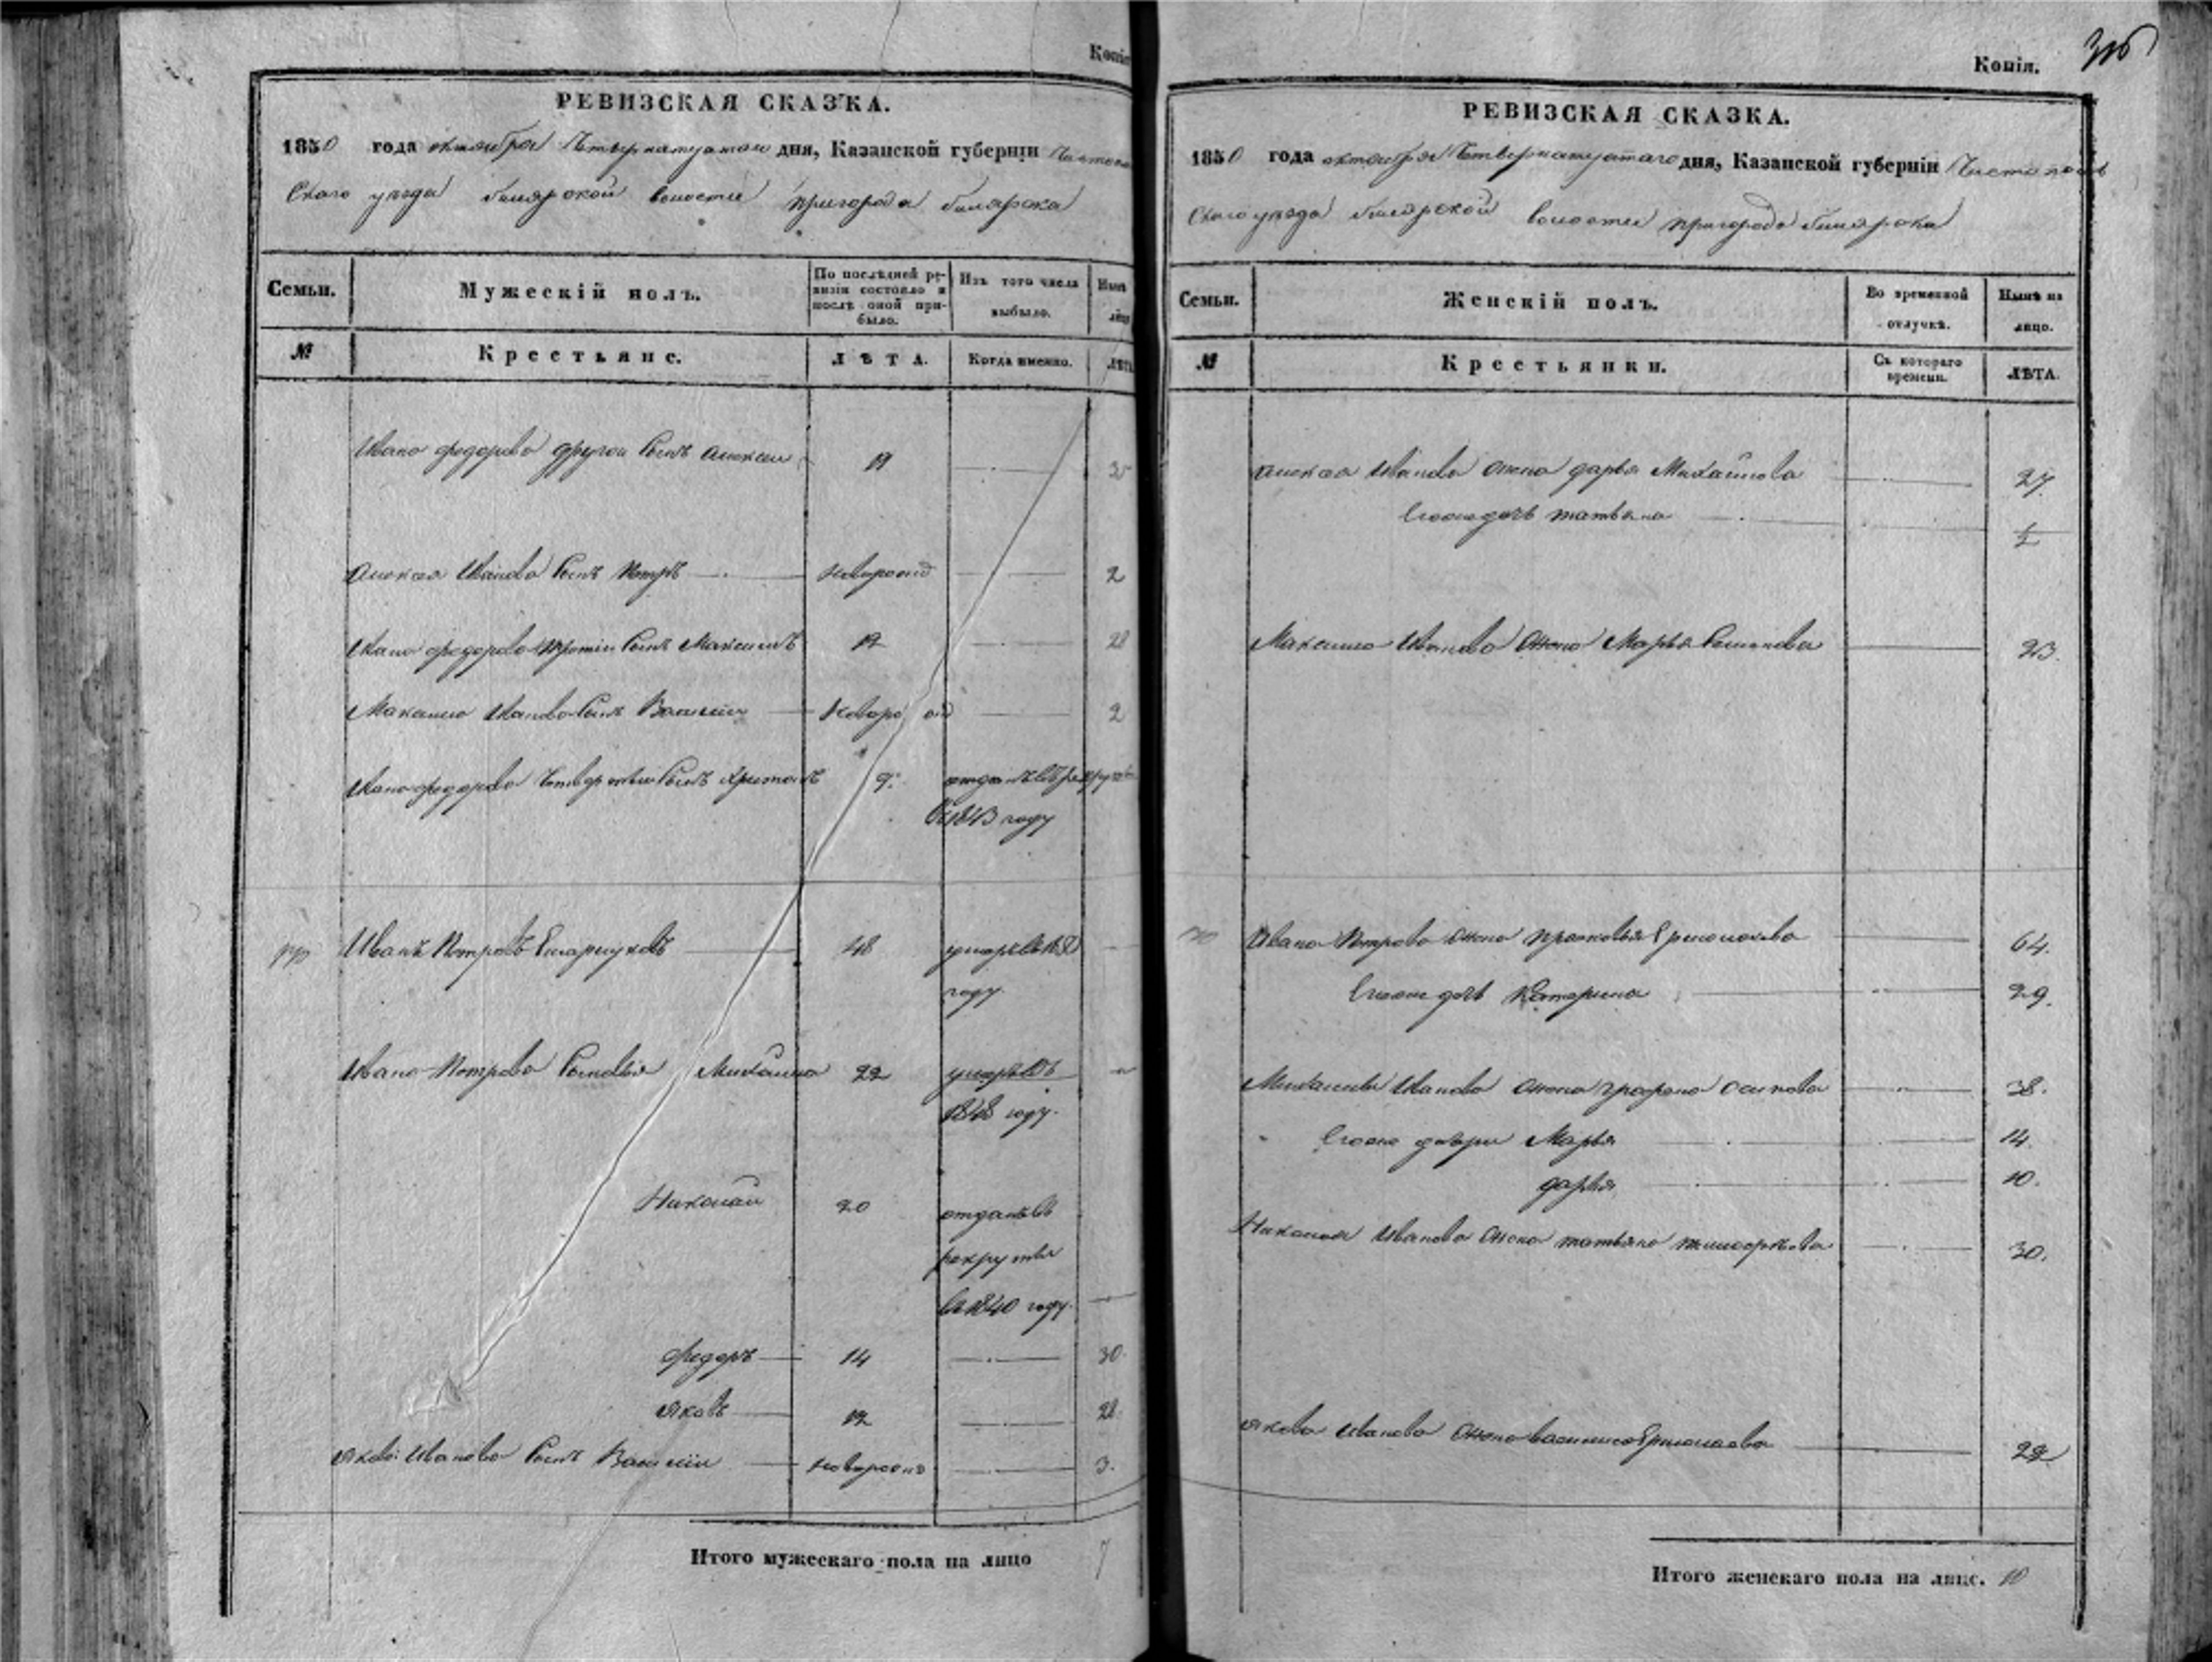 Копія
РЕВИЗСКАЯ СКАЗКА.
1850 года октября Четвернатцатаго дня, Казанской губерніи Чистополь
Скаго уезда билярской волости пригорода билярска
Семьи.
Мужескій полъ.
По послѣдней ре-
визіи состояло и
послѣ оной при-
было.
Изъ того числа
выбыло.
№
Крестьяне.
ЛѢТА.
Когда именно.
ЛѢТА
Ивана федорова другой Сынъ алексей 19
алексея Иванова Сынъ Петръ новорожд 2
Ивана федорова третій Сынъ Максимъ 12 28
Максима Иванова Сынъ Василій Новорожд 2
Ивана федорова Четвертый Сынъ 9. отданъ въ рекруты
в 1843 году
Иванъ Петровъ 48 умеръ въ
году.
Ивана Петрова Сыновья Михайла 22 умеръ въ
1848 году.
Николай 20 отданъ въ
рекруты
в 1840 году.
федоръ 14 30.
Яковъ 12 28.
Якова Иванова Сынъ Василій новорожд 3.
Итого мужескаго пола на лицо 7
Копія.
РЕВИЗСКАЯ СКАЗКА.
1850 года октября Четвернатцатаго дня, Казанской губерніи Чистополь
Скаго уезда билярской волости пригорода билярска
Семьи.
Женскій полъ.
Во временной
отлучкѣ.
Нынѣ на
лицо.
№
Крестьянки.
Съ котораго
времени.
ЛѢТА.
алексея Иванова жена дарья Михайлова 27.
Егоже дочь татьяна 1/2
Максима Иванова жена Марья Семенова 23.
Ивана Петрова жена прасковья Ермолаева 64.
Егоже дочь Катерина 29.
Михайлы Иванова жена графена осипова 38.
Егоже дочери Марья 14.
дарья 10.
Николая Иванова жена татьяна 30.
Якова Иванова жена василиса Ермолаева 22
Итого женскаго пола на лицо. 10